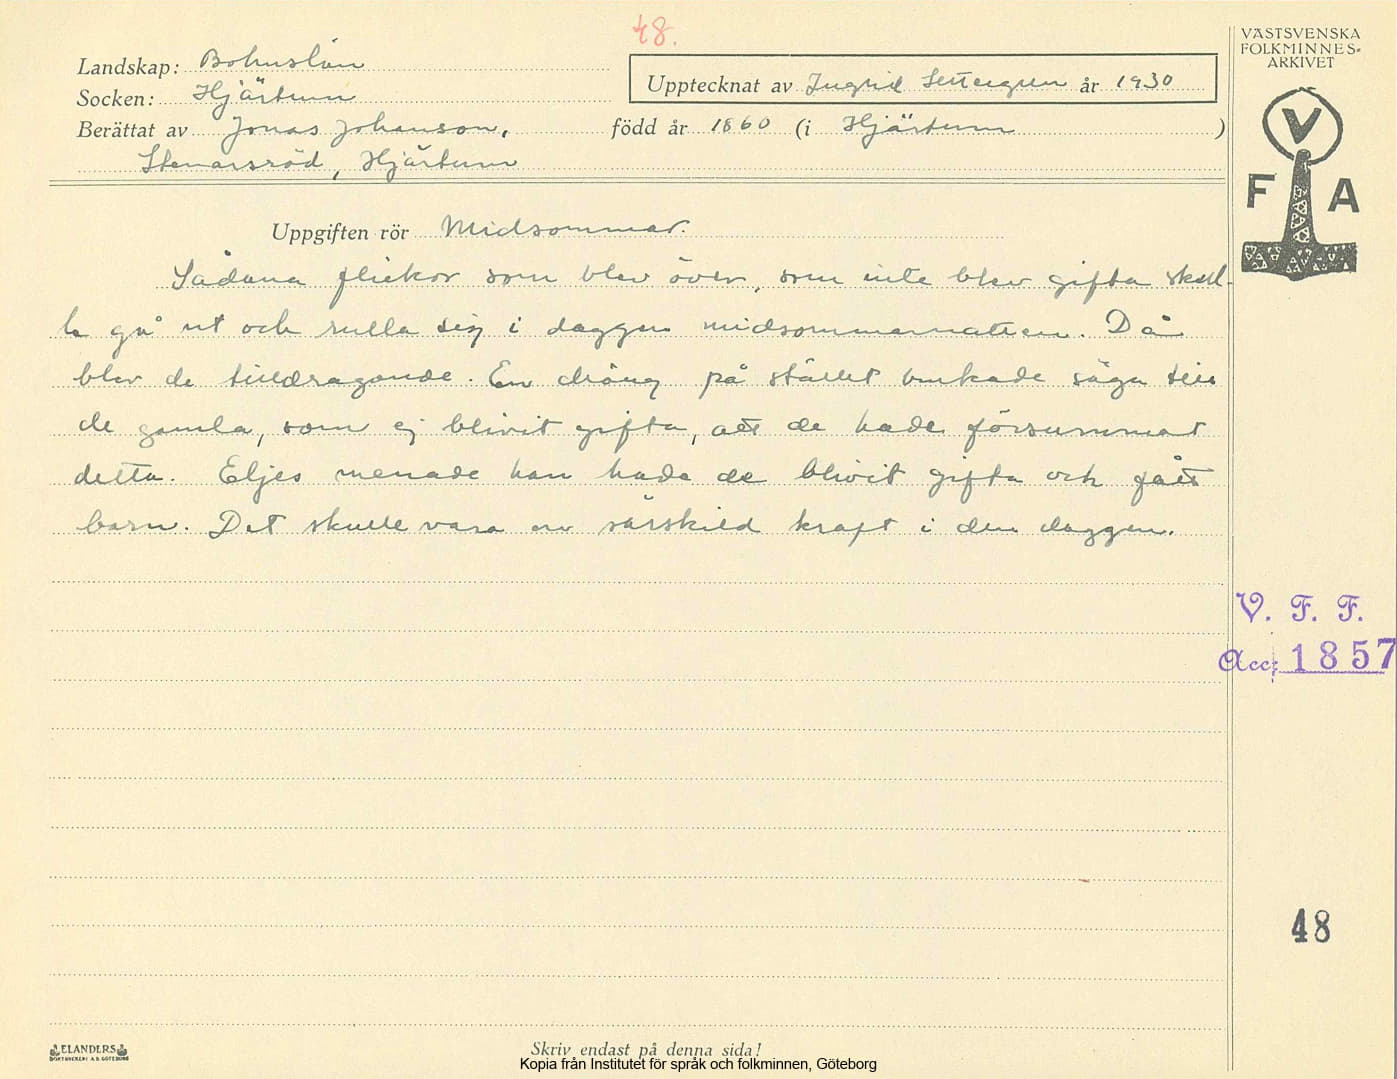 48.
VÄSTSVENSKA
FOLKMINNES-
ARKIVET
Landskap: Bohuslän
Upptecknat av Ingrid Settergren år 1930
Socken: Hjärtum
Berättat av Jonas Johanson, född år 1860 (i Hjärtum )
Stenarsröd, Hjärtum
V
F A
Uppgiften rör Midsommar.
Sådana flickor som blev över, som inte blev gifta skul-
le gå ut och rulla sig i daggen midsommarnatten. Då
blev de tilldragande. En dräng på stället brukade säga till
de gamla, som ej blivit gifta, att de hade försummat
detta. Eljes menade han hade de blivit gifta och fått
barn. Det skulle vara en särskild kraft i den daggen.
V. F. F.
Acc: 1857
48
ELANDERS
BOKTRYCKERI A.B. GÖTEBORG
Skriv endast på denna sida!
Kopia från Institutet för språk och folkminnen, Göteborg